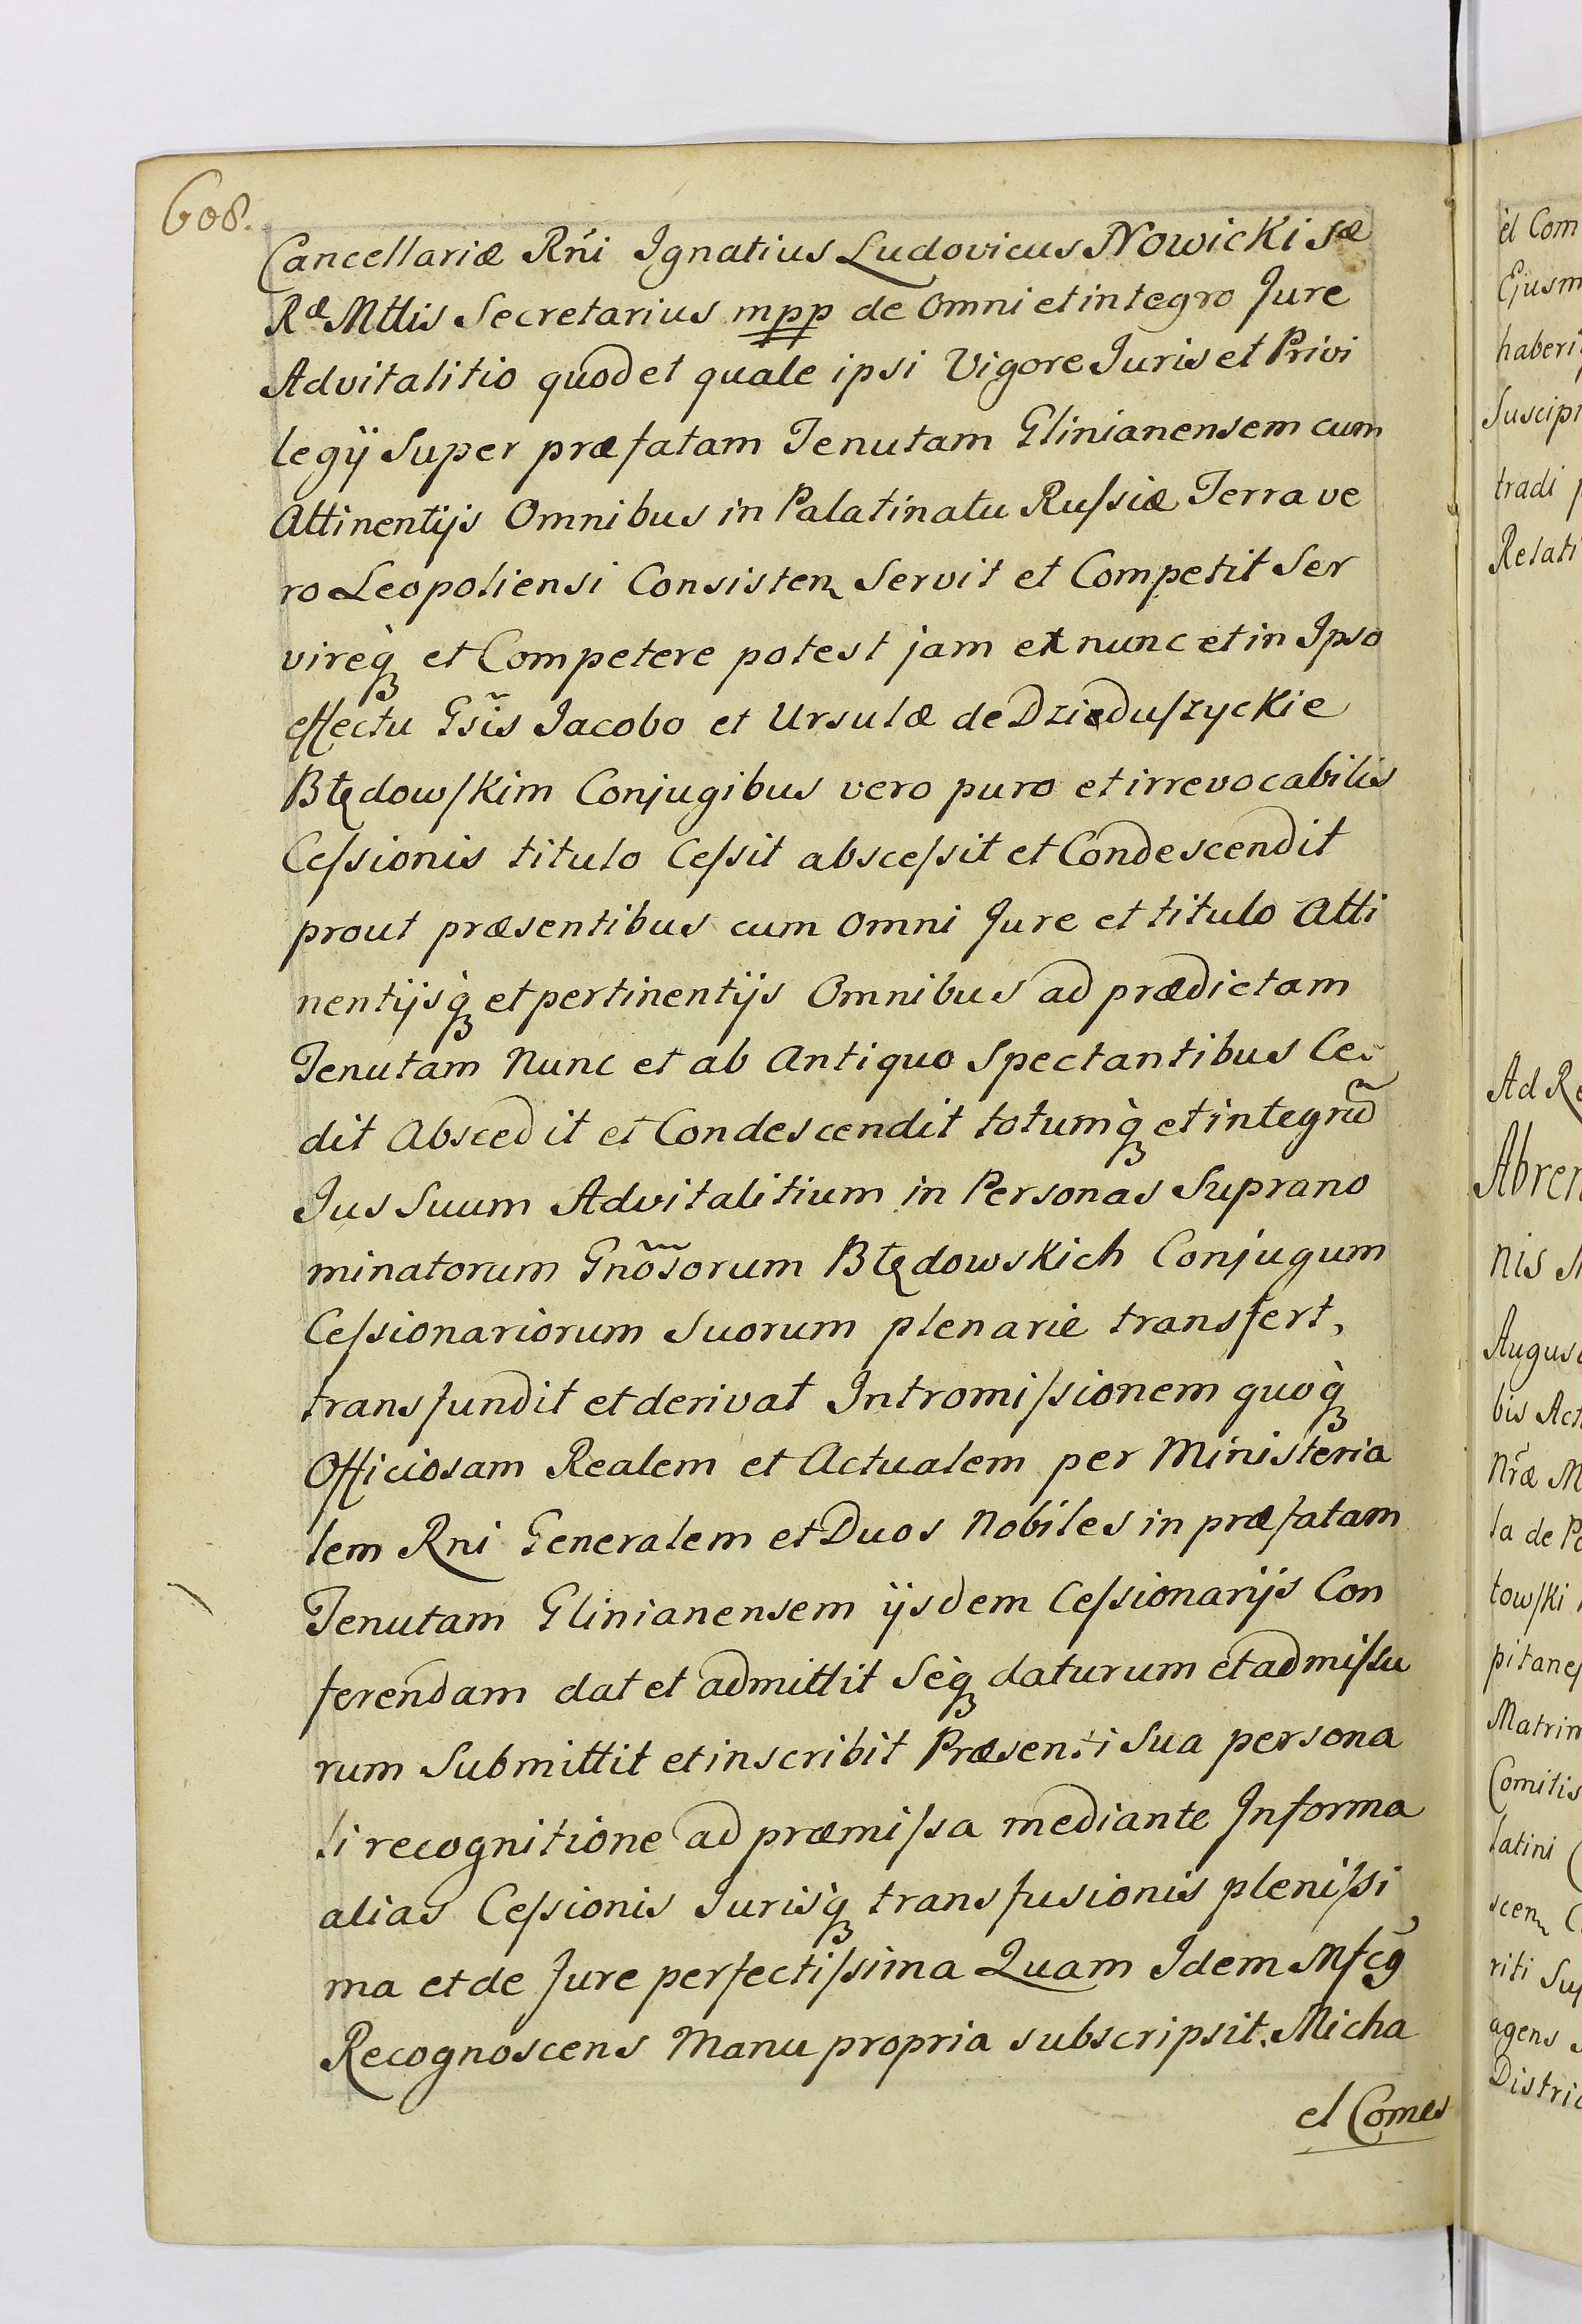 608.
Cancellariæ Rńi Ignatius Ludovicus Nowicki Sæ
Ræ Mttis Secretarius mpp de Omni et integro Jure
Advitalitio quod et quale ipsi Vigore Juris et Privi
legÿ Super præfatam Tenutam Glinianensem cum
Attinentijs Omnibus in Palatinatu Ruſsiæ Terra ve
ro Leopoliensi Consisten Servit et Competit Ser
vireq̀ et Competere potest jam ex nunc et in Ipso
effectu Gs̃is Jacobo et Ursulæ de Dzieduſzyckie
Błędowſkim Conjugibus vero puro et irrevocabilis
Ceſsionis titulo Ceſsit absceſsit et Condescendit
prout præsentibus cum Omni Jure et titulo Atti
nentijsq̀ et pertinentijs Omnibus ad prædictam
Tenutam Nunc et ab Antiquo Spectantibus Ce-
dit Abscedit et Condescendit totumq̀ et integrũ
Jus Suum Advitalitium in Personas Suprano
minatorum Gnõsorum Błędowskich Conjugum
Ceſsionariorum Suorum plenarie transfert,
transfundit et derivat Intromiſsionem quoq̀
Officiosam Realem et Actualem per Ministeria
lem Rni Generalem et Duos Nobiles in præfatam
Tenutam Glinianensem ijsdem Ceſsionarijs Con
ferendam dat et admittit Seq̀ daturum et admiſsu
rum Submittit et inscribit Præsenti Sua persona
li recognitione ad præmiſsa mediante Informa
alias Ceſsionis Jurisq̀ transfusionis pleniſsi
ma et de Jure perfectiſsima Quam Idem Mfcg̃
Recognoscens Manu propria subscripsit. Micha
el Comes
el Com
Ejusm
haberi
Suscipi
tradi
Relati
Ad Re
Abren
nis
Augus
bis Act
Nr̃æ M
la de Po
towſki
pitane
Matrim
Comitis
latini
scen
riti Sup
agens
Distric